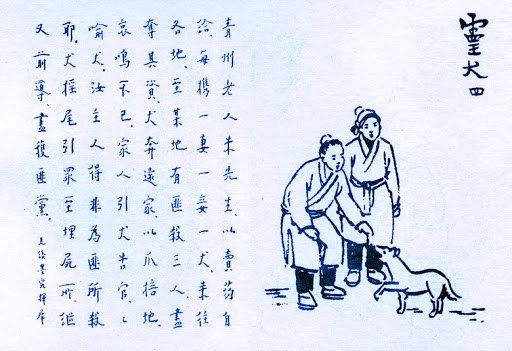 靈犬四
青州老人朱先生以賣药自
給、每携一妻一妾一犬、来往
各地、至某地有匪殺三人、盡
奪其資、犬奔還家、以爪掊地、
哀鳴不已、家人引犬告官、々
喻犬、汝主人得非為匪所殺
耶、犬摇尾引眾至埋屍所、繼
又前導、盡獲匪黨、
見续墨客揮犀